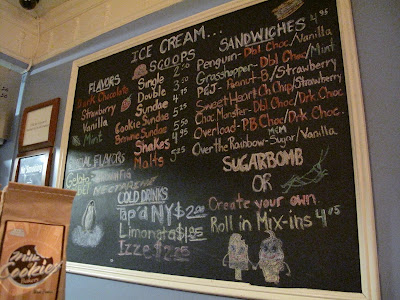 ICE CREAM...
FLAVORS
Dark Chocolate
Strawberry
Vanilla
Mint
SCOOPS
Single 2.50
Double 3.50
Sundae 4.95
Cookie Sundae 5.50
Brownie Sundae 5.50
Shakes 4.95
Malts 5.25
SANDWICHES 4.95
Penguin- Dbl Choc/Vanilla
Grasshopper- Dbl Choc/Mint
PB&J- Peanut B/Strawberry
Sweet Heart Ch. Chip/Strawberry
Choc Monster- Dbl Choc/Drk Choc
Overload- P.B Choc/Drk Choc.
Over the Rainbow- M&M Sugar/Vanilla
SUGARBOMB
OR
Create your own
Roll in Mix-ins 4.95
FLAVORS
Gelato
COLD DRINKS
Tap'd NY $2.00
Limonata $1.95
Izze $2.25
Cookie